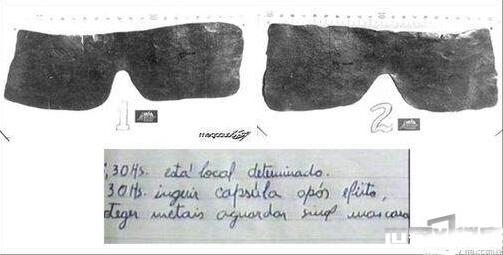 1
2
:30Hs. está local determinado.
30Hs. ingerir capsúla após efeito,
teger metais aguardar sinal mascara